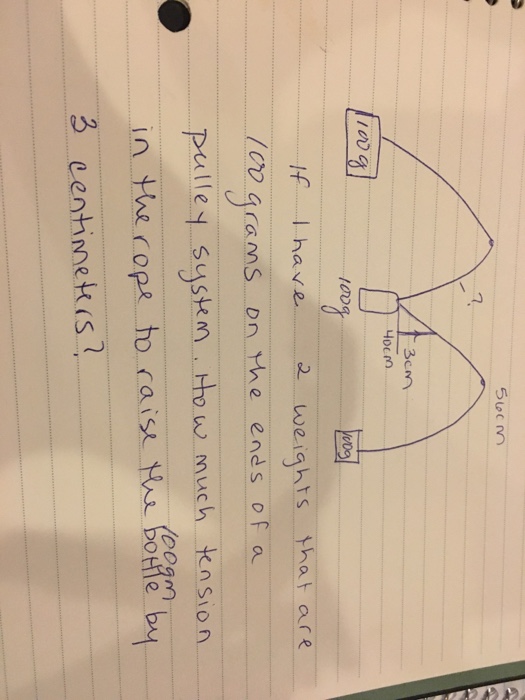 56cm
- ?
3cm
40cm
100g
100g
100g
If I have 2 weights that are
100 grams on the ends of a
pulley system. How much tension
in the rope to raise the 100gm bottle by
3 centimeters?